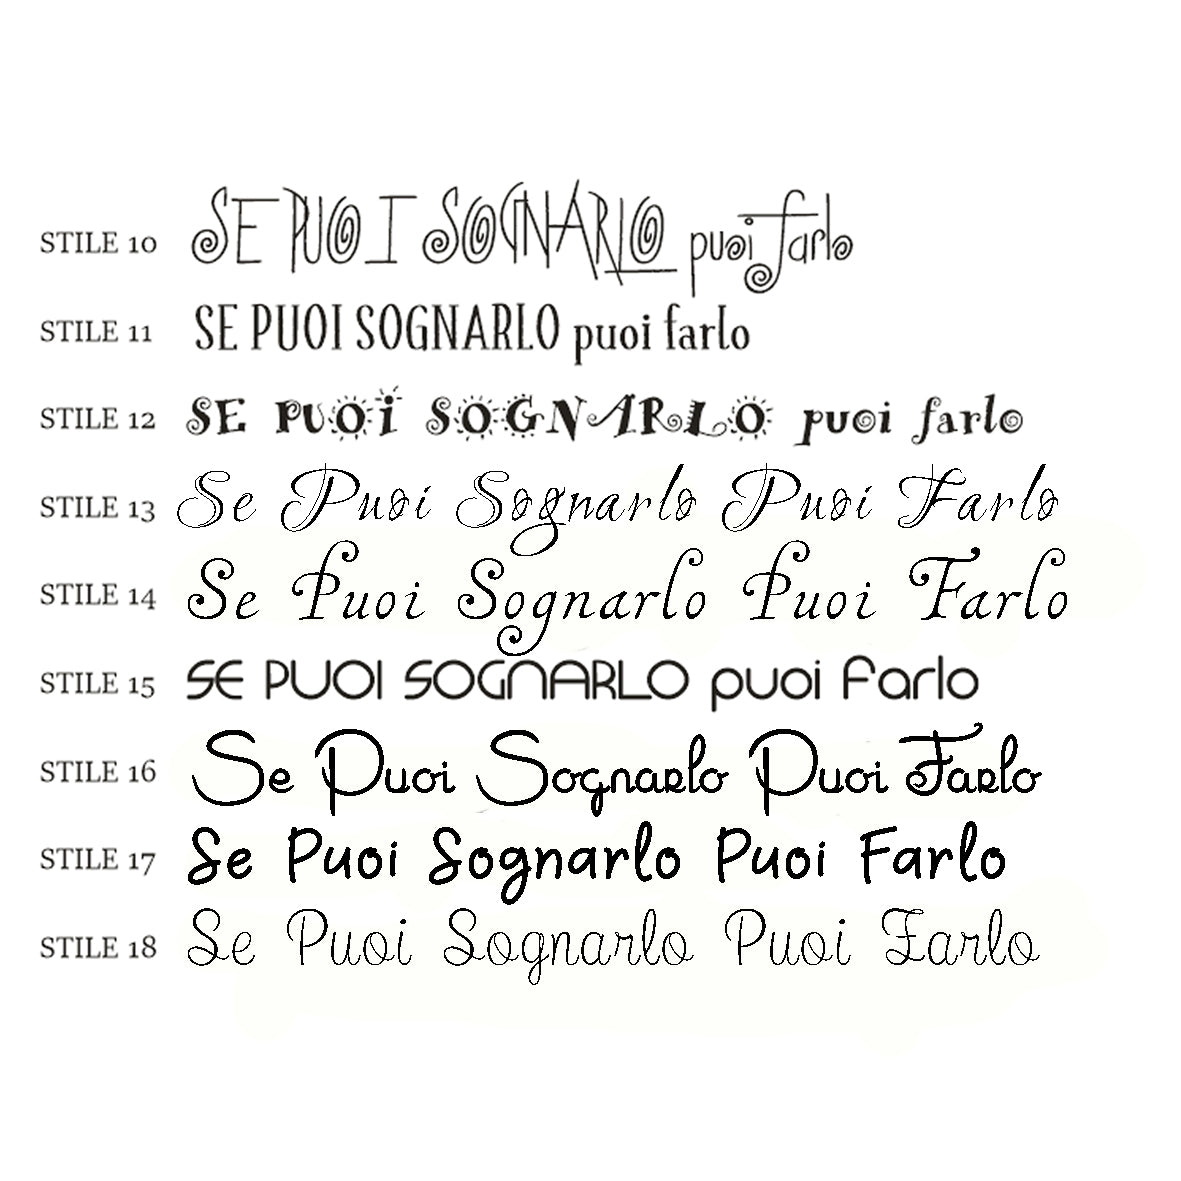 STILE 10 SE PUOI SOGNARLO puoi farlo
STILE 11 SE PUOI SOGNARLO puoi farlo
STILE 12 SE PUOI SOGNARLO puoi farlo
STILE 13 Se Puoi Sognarlo Puoi Farlo
STILE 14 Se Puoi Sognarlo Puoi Farlo
STILE 15 SE PUOI SOGNARLO puoi farlo
STILE 16 Se Puoi Sognarlo Puoi Farlo
STILE 17 Se Puoi Sognarlo Puoi Farlo
STILE 18 Se Puoi Sognarlo Puoi Farlo